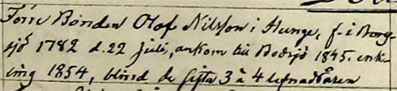 Förre Bonden Olof Nilsson i Hunge, f. i Berg-
sjö 1782 d. 22 Juli, ankom till Bodsjö 1845. enk-
ling 1854, blind de sista 3 à 4 lefnadsåren